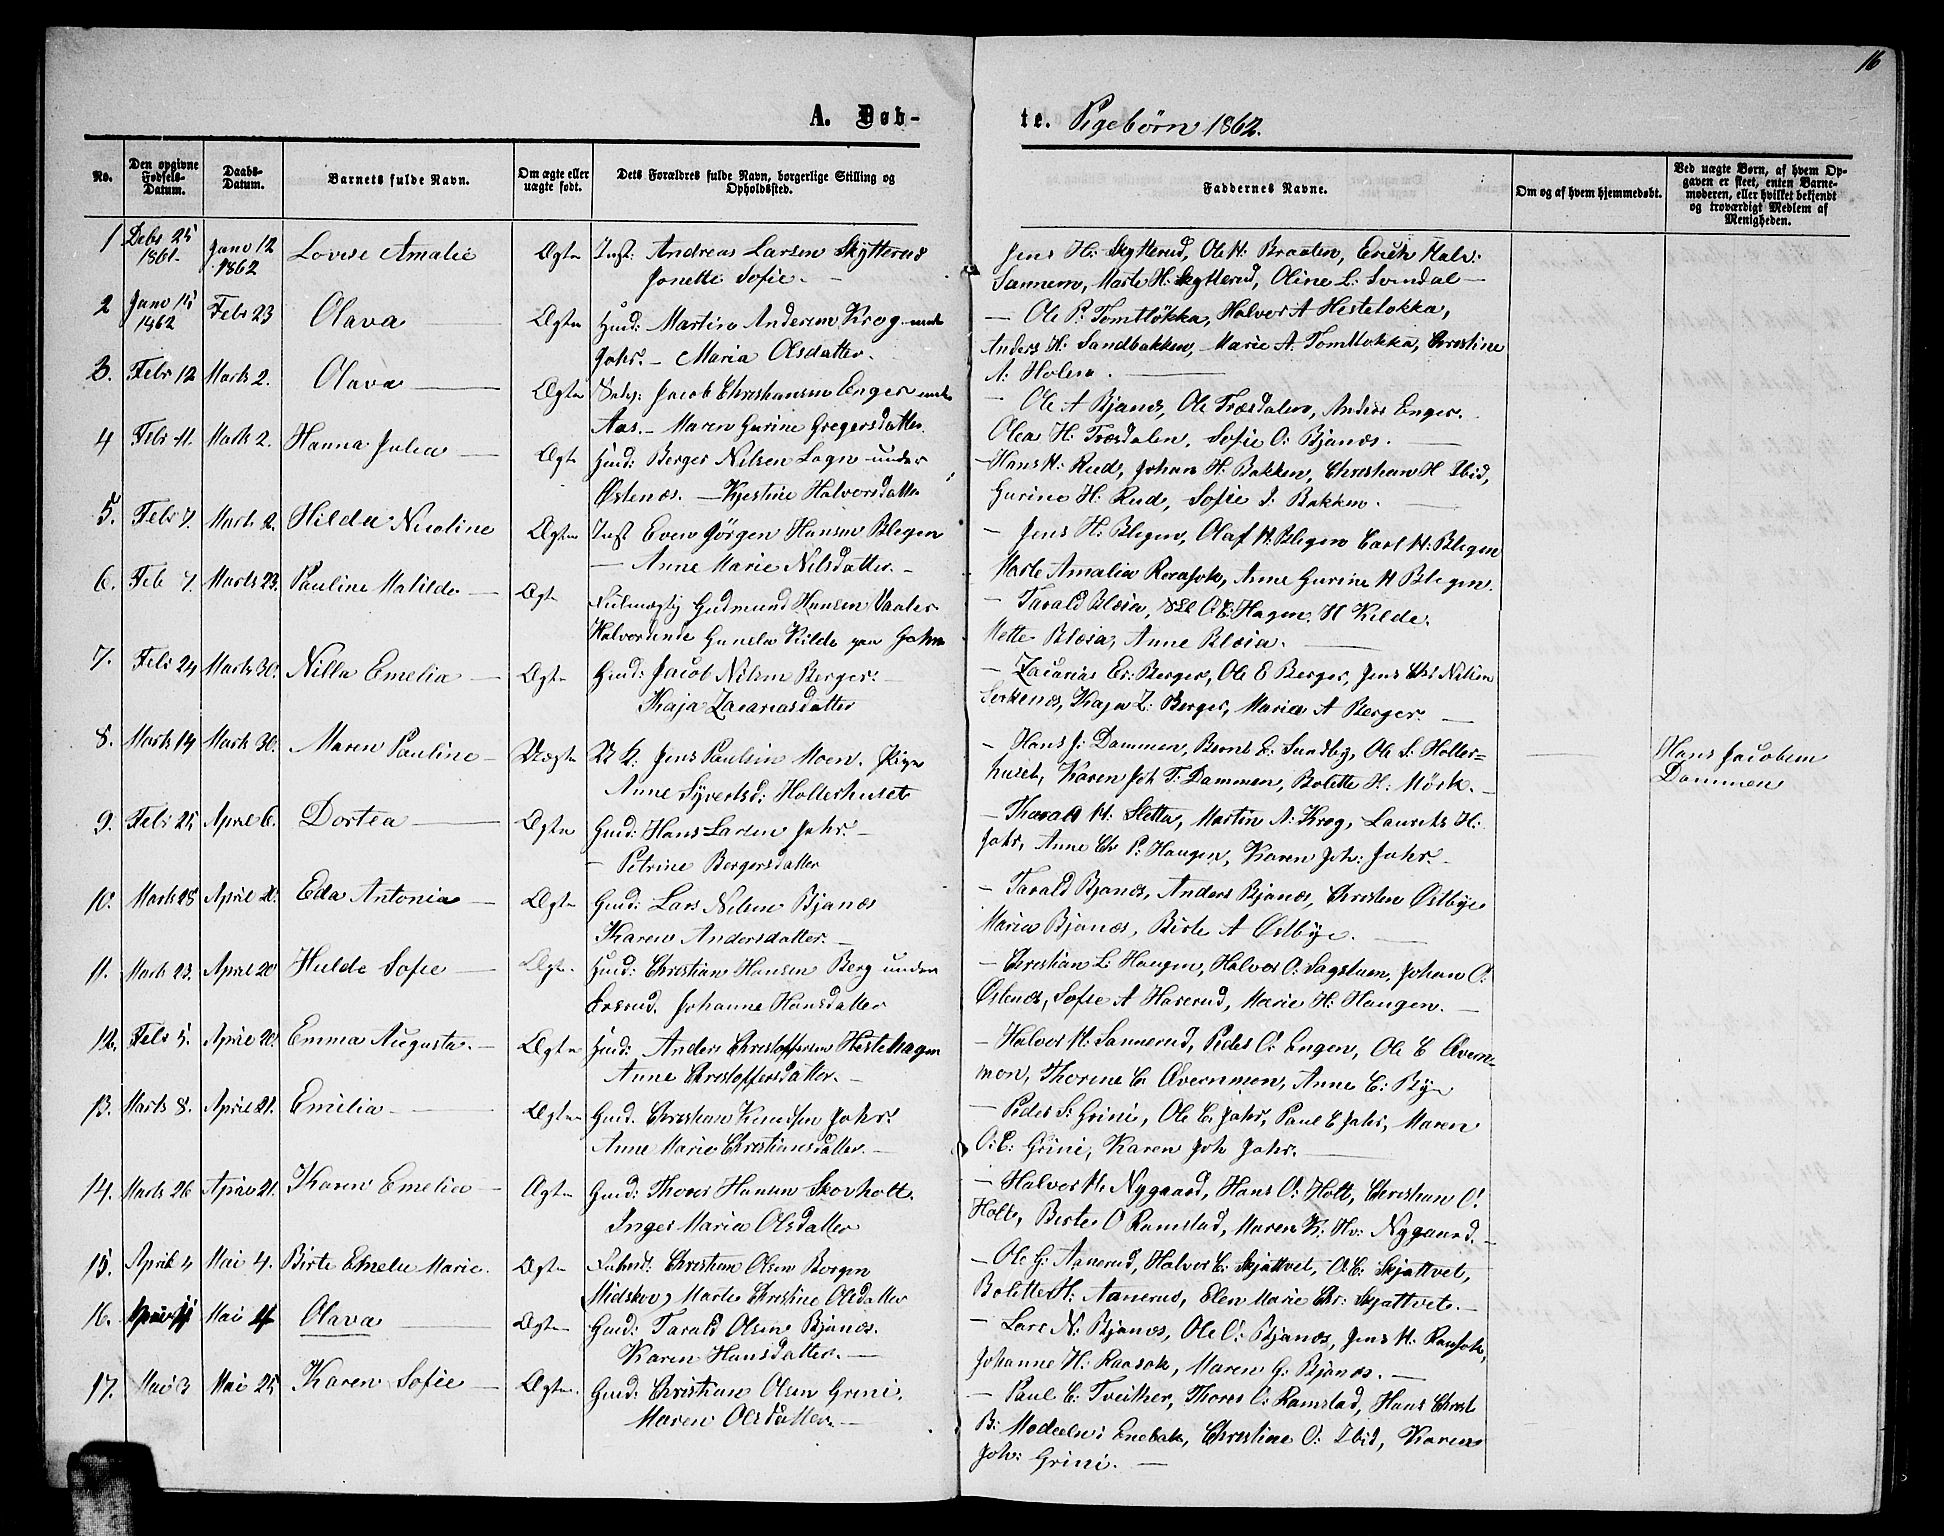 16
A. Døb-
te. Pigebørn 1862.
No. Den opgivne Fødsels-Datum. Daabs-Datum. Barnets fulde Navn. Om ægte eller uægte født. Dets Forældres fulde Navn, borgerlige Stilling og Opholdssted. Faddernes Navne. Om og af hvem hjemmedøbt. Ved uægte Børn, af hvem Opgaven er skeet, enten Barnemoderen, eller hvilket bekjendt og troværdigt Medlem af Menigheden.
1 Debr 25 1861. Janv 12 1862 Lovise Amalie Ægte Inst: Andreas Larsen Skytterud
Jonette Sofie. —
Jens H: Skytterud, Ole H. Braaten, Erich Halv:
Sannem, Marte H: Skytterud, Oline L: Svendal —
2 Janv 15 1862 Febr 23 Olava Ægte Huusd: Martin Andersen Krog under
Jahr. — Maria Olsdatter.
— Ole P: Tomtløkka, Halvor A Hesteløkka,
Anders H: Sandbakken, Marie A. Tomtløkka, Christine
A: Holen.
3. Febr 12 Marts 2. Olava — Ægte Jacob Christiansen Enger under
Aas. — Maren Gurine Gregersdatter
— Ole A Bjanes, Ole Træsdalen, Anders Enger.
Olea H: Træsdalen, Sofie O: Bjanes. —
4 Febr 11. Marts 2. Hanna Julia — Ægte Huusd: Berger Nilsen Lagn under
Østenæs. — Kjestine Halvorsdatter
— Hans H: Rud, Johan H: Bakken, Christian H Ibid,
Gurine H: Rud, Sofie J: Bakken. —
5. Febr 7. Marts 2. Hilda Nicoline Ægte Inst Even Jørgen Hansen Blegen
— Anne Marie Nilsdatter. —
— Jens H: Blegen, Olaf H: Blegen Carl H: Blegen
Marte Amalia Ramsok, Anne Gurine H Blegen.
6. Feb 7. Marts 23. Pauline Matilde — Ægte Fulmægtig Gudmund Hansen Vaaler
Halvorine Gunela Kilde paa Jahr
— Tarald Blæsia, O: E: Hagen, H Kilde.
Mette Blæsia, Anne Blæsia. —
7. Febr 24 Marts 30. Nilla Emelia — Ægte Gmd: Jacob Nilsen Berger. —
Kaja Zacariasdatter
— Zacarias Er: Berger, Ole E Berger, Jens Chr Nilsen
Kaja Z: Berger, Maria A Berger. —
8. Marts 14 Marts 30. Maren Pauline — Uægte U K: Jens Paulsen Moen. Pige
Anne Syvertsd: Hollerhuset
— Hans J: Dammen, Bernt E: Sundby, Ole S: Holler-
huset, Karen Joh T: Dammen, Bolette H: Mørk. — — Hans Jacobsen
Dammen
9. Febr 25 April 6. Dortea — Ægte Gmd: Hans Larsen Jahr. —
— Petrine Bergersdatter
— Tharald H: Sletta, Martin A: Krog, Laurits H:
Jahr, Anne Chr P: Haugen, Karen Joh: Jahr. —
10. Marts 28 April 20. Eda Antonia — Ægte Gmd: Lars Nilsen Bjanes
Karen Andersdatter. —
— Tarald Bjanes, Anders Bjanes, Christen Østbye
Maria Bjanes, Birte A Østbye. —
11. Marts 23. April 20 Hulde Sofie — Ægte. Huusd: Christian Hansen Berg under
Ersrud. Johanne Hansdatter
— Christian L: Haugen, Halvor O: Sagstuen, Johan O:
Østenæs, Sofie A Harerud, Marie H: Haugen. —
12. Febr 5. April 20. Emma Augusta. — Ægte Huusd: Anders Christoffersen Hestehagen
Anne Christoffersdatter. —
— Halvor H: Sannerud, Peder O: Engen, Ole C Øvern-
mon, Thorine C. Øvernmon, Anne C: Bye
13. Marts 8. April 21. Emilia — Ægte Gmd. Christian Knudsen Jahr.
Anne Marie Christiansdatter. —
— Peder S: Grini, Ole E: Jahr, Paul E Jahr, Maren
O: E: Grini, Karen Joh Jahr. —
14. Marts 26 April 21. Karen Emelia — Ægte Gmd: Thorer Hansen Skovholt.
Inger Maria Olsdatter
— Halvor H: Nygaard, Hans O: Holt, Christian O:
Holt, Birte O Ramstad, Maren K: Hv: Nygaard. —
15. April 4 Mai 4. Birte Emelie Marie. Ægte Christian Olsen Borgen
Midskov, Marte Christine Olsdatter
— Ole G: Aanerud, Halvor E: Skjattvet, O: E: Skjattvet,
Bolette H: Aanerud, Elen Marie Chr: Skjattvet. —
16. April 11 Mai 4 Olava — Ægte Gmd: Tarald Olsen Bjanes.
Karen Hansdatter. —
— Lars N: Bjanes, Ole O: Bjanes, Jens H: Ramsok,
Johanne H: Raasok, Maren G: Bjanes. —
17. Mai 3 Mai 25 Karen Sofie — Ægte Gmd: Christian Olsen Grini.
Maren Olsdatter. —
— Paul E: Tveither, Thorer O: Ramstad, Hans Christ
B: Enebak, Christine O: Ibid, Karen
Joh: Grini. —